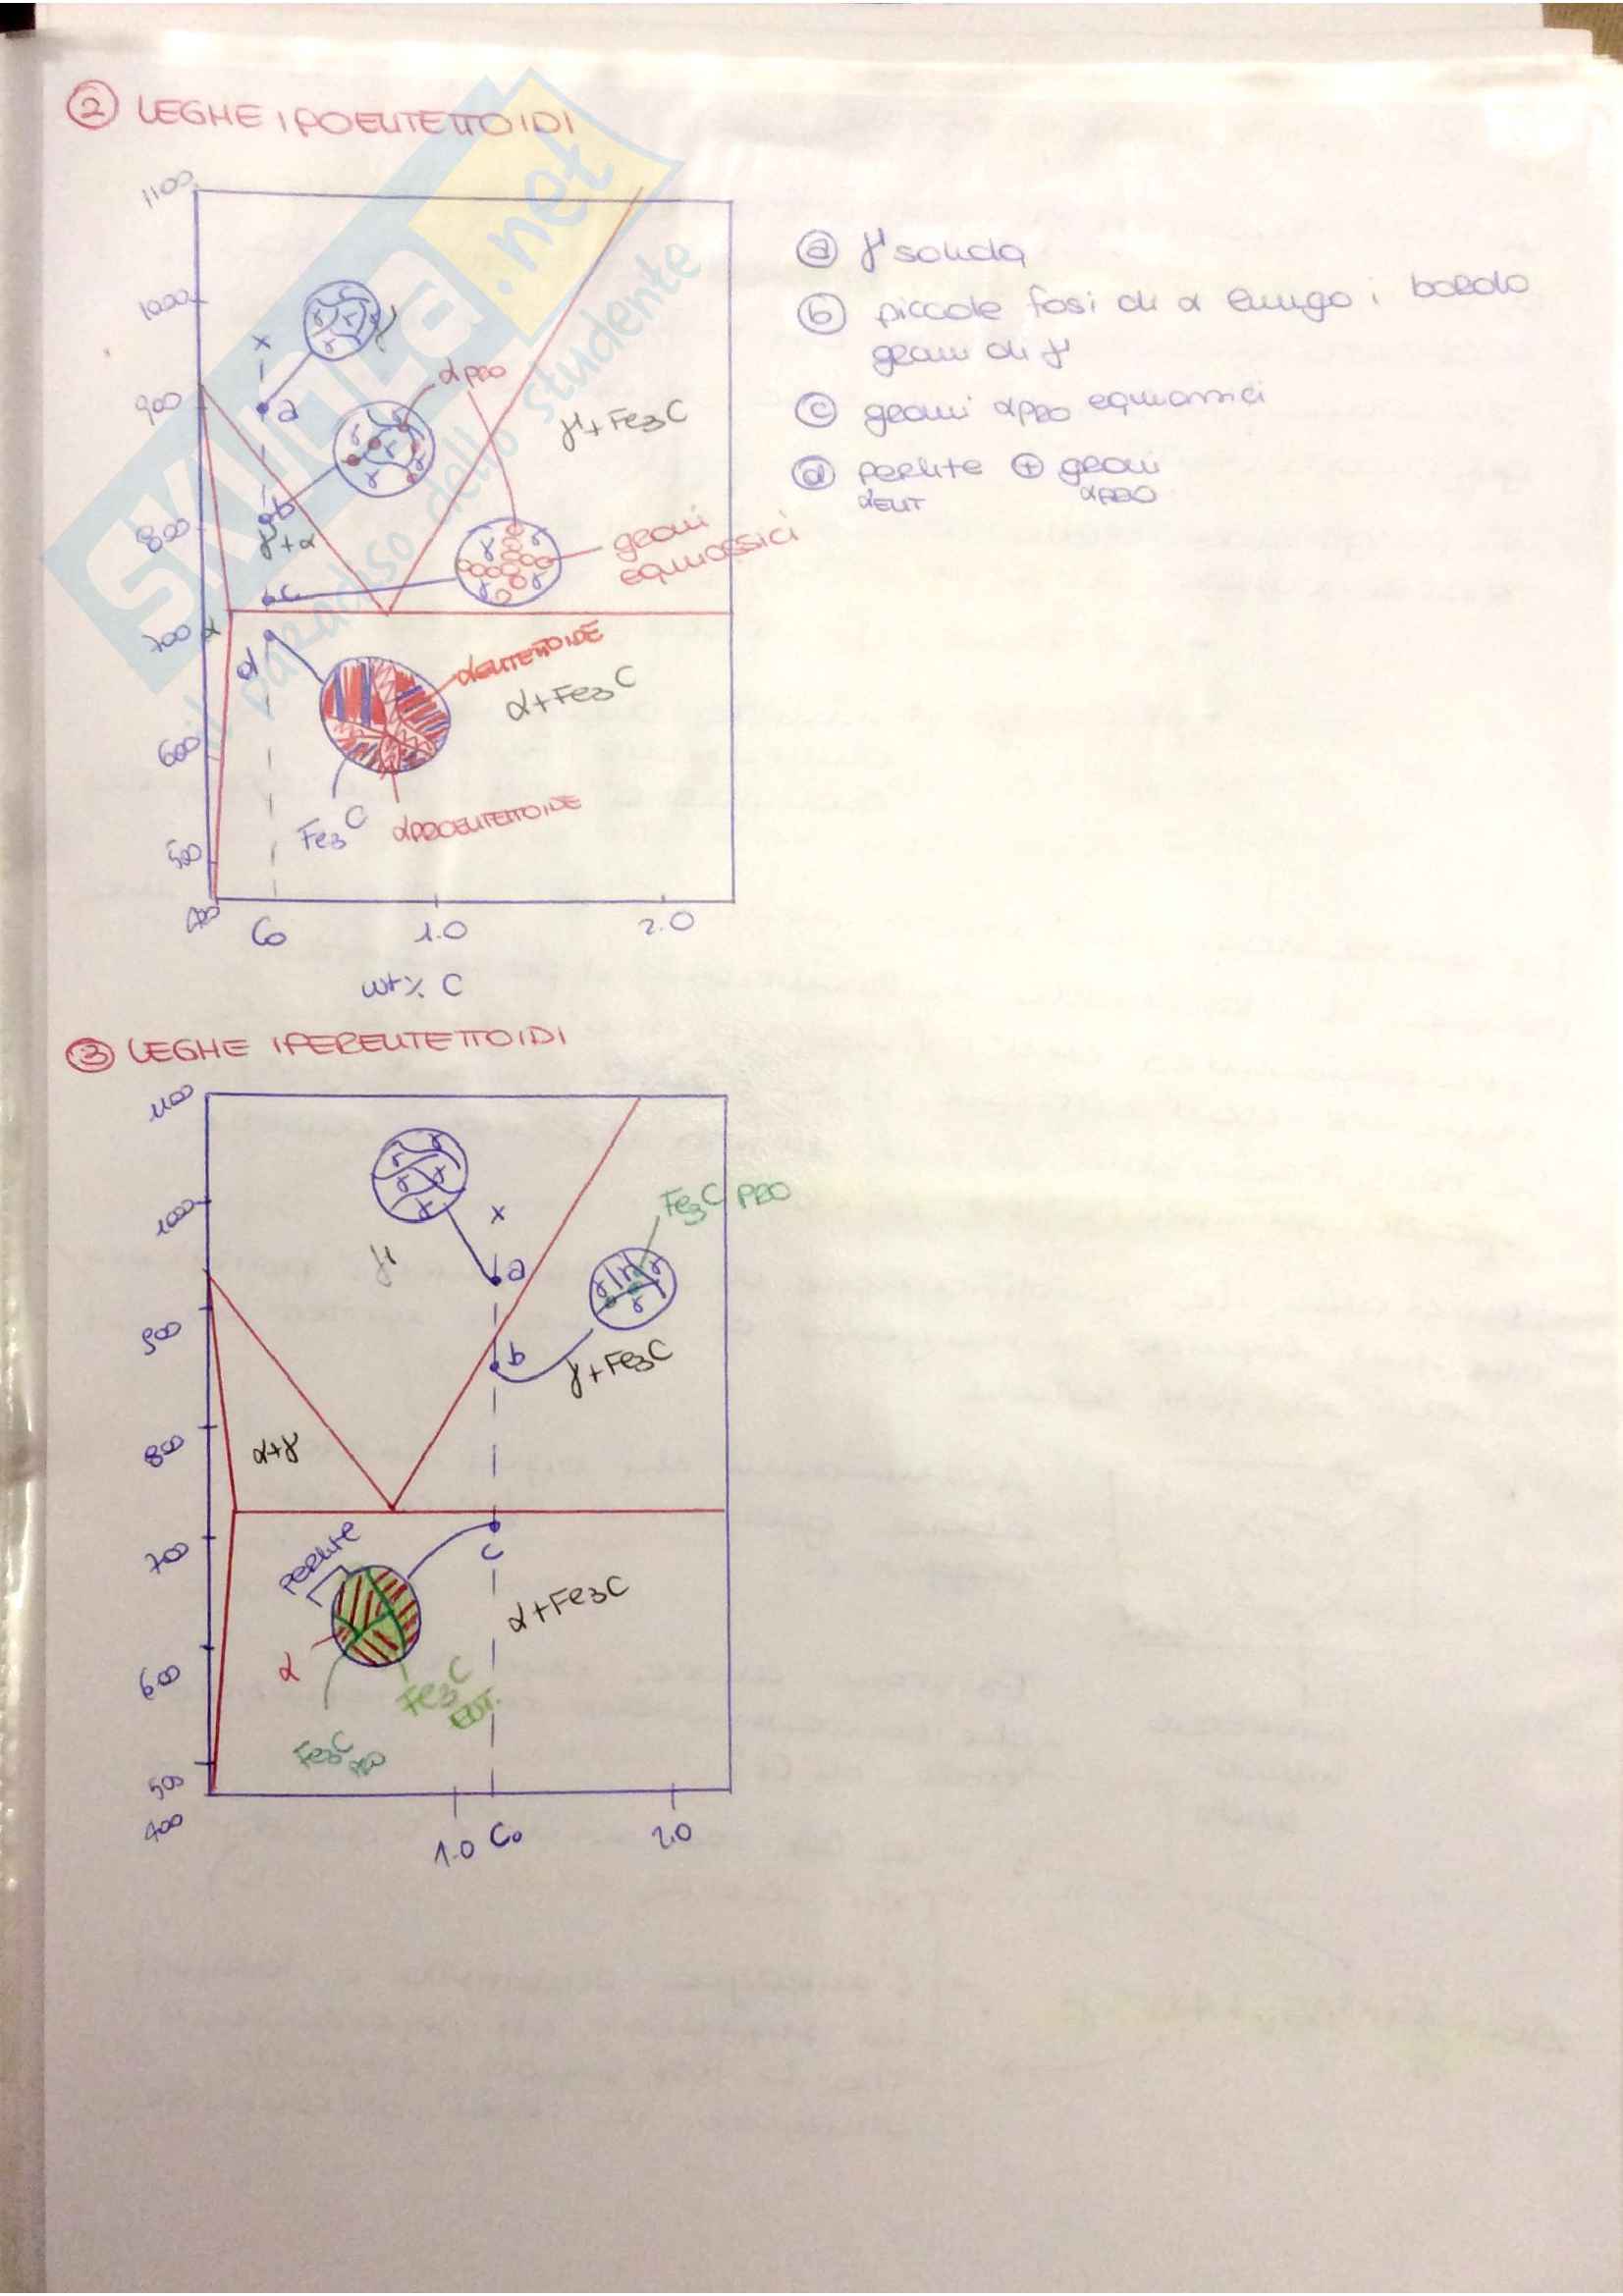 ② LEGHE IPOEUTETTOIDI
1100
1000
900
800
700
600
500
400
x
a
b
c
d
γ
γ
γ
γ
α PRO
γ
γ
γ
γ
γ + Fe3C
γ+α
γ
γ
γ
γ
grani
equiassici
α
α EUTETTOIDE
α+Fe3C
Fe3C
α PROEUTETTOIDE
C0
1.0
2.0
wt% C
ⓐ γ solida
ⓑ piccole fasi di α lungo i bordo
grani di γ
ⓒ grani αPRO equiassici
ⓓ perlite ⊕ grani
αEUT αPRO
SKUOLA.net
il paradiso dello studente
③ LEGHE IPEREUTETTOIDI
1100
1000
900
800
700
600
500
400
γ
γ
γ
γ
γ
γ
x
a
b
c
Fe3C PRO
γ
γ
γ
γ
γ+Fe3C
α+γ
PERLITE
α
α+Fe3C
Fe3C
EUT.
Fe3C PRO
1.0
C0
2.0